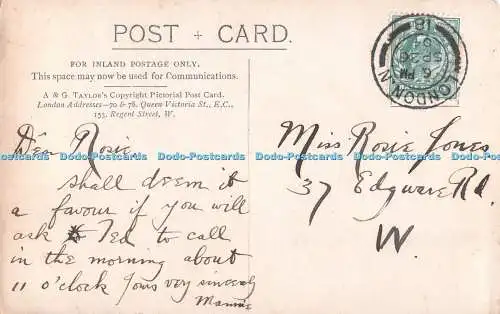 POST CARD.
FOR INLAND POSTAGE ONLY.
This space may now be used for Communications.
A & G TAYLOR'S Copyright Pictorial Post Card.
London Addresses—70 & 78, Queen Victoria St., E.C.,
153, Regent Street, W.
Dear Rosie
shall deem it
a favour if you will
ask Ted to call
in the morning about
11 o'clock yours very sincerely
Mannie
Miss Rosie Jones
37 Edgware Rd.
W.
LONDON
6 PM
Dodo-Postcards Dodo-Postcards Dodo-Postcards Dodo-Postcards Dodo-Postcards